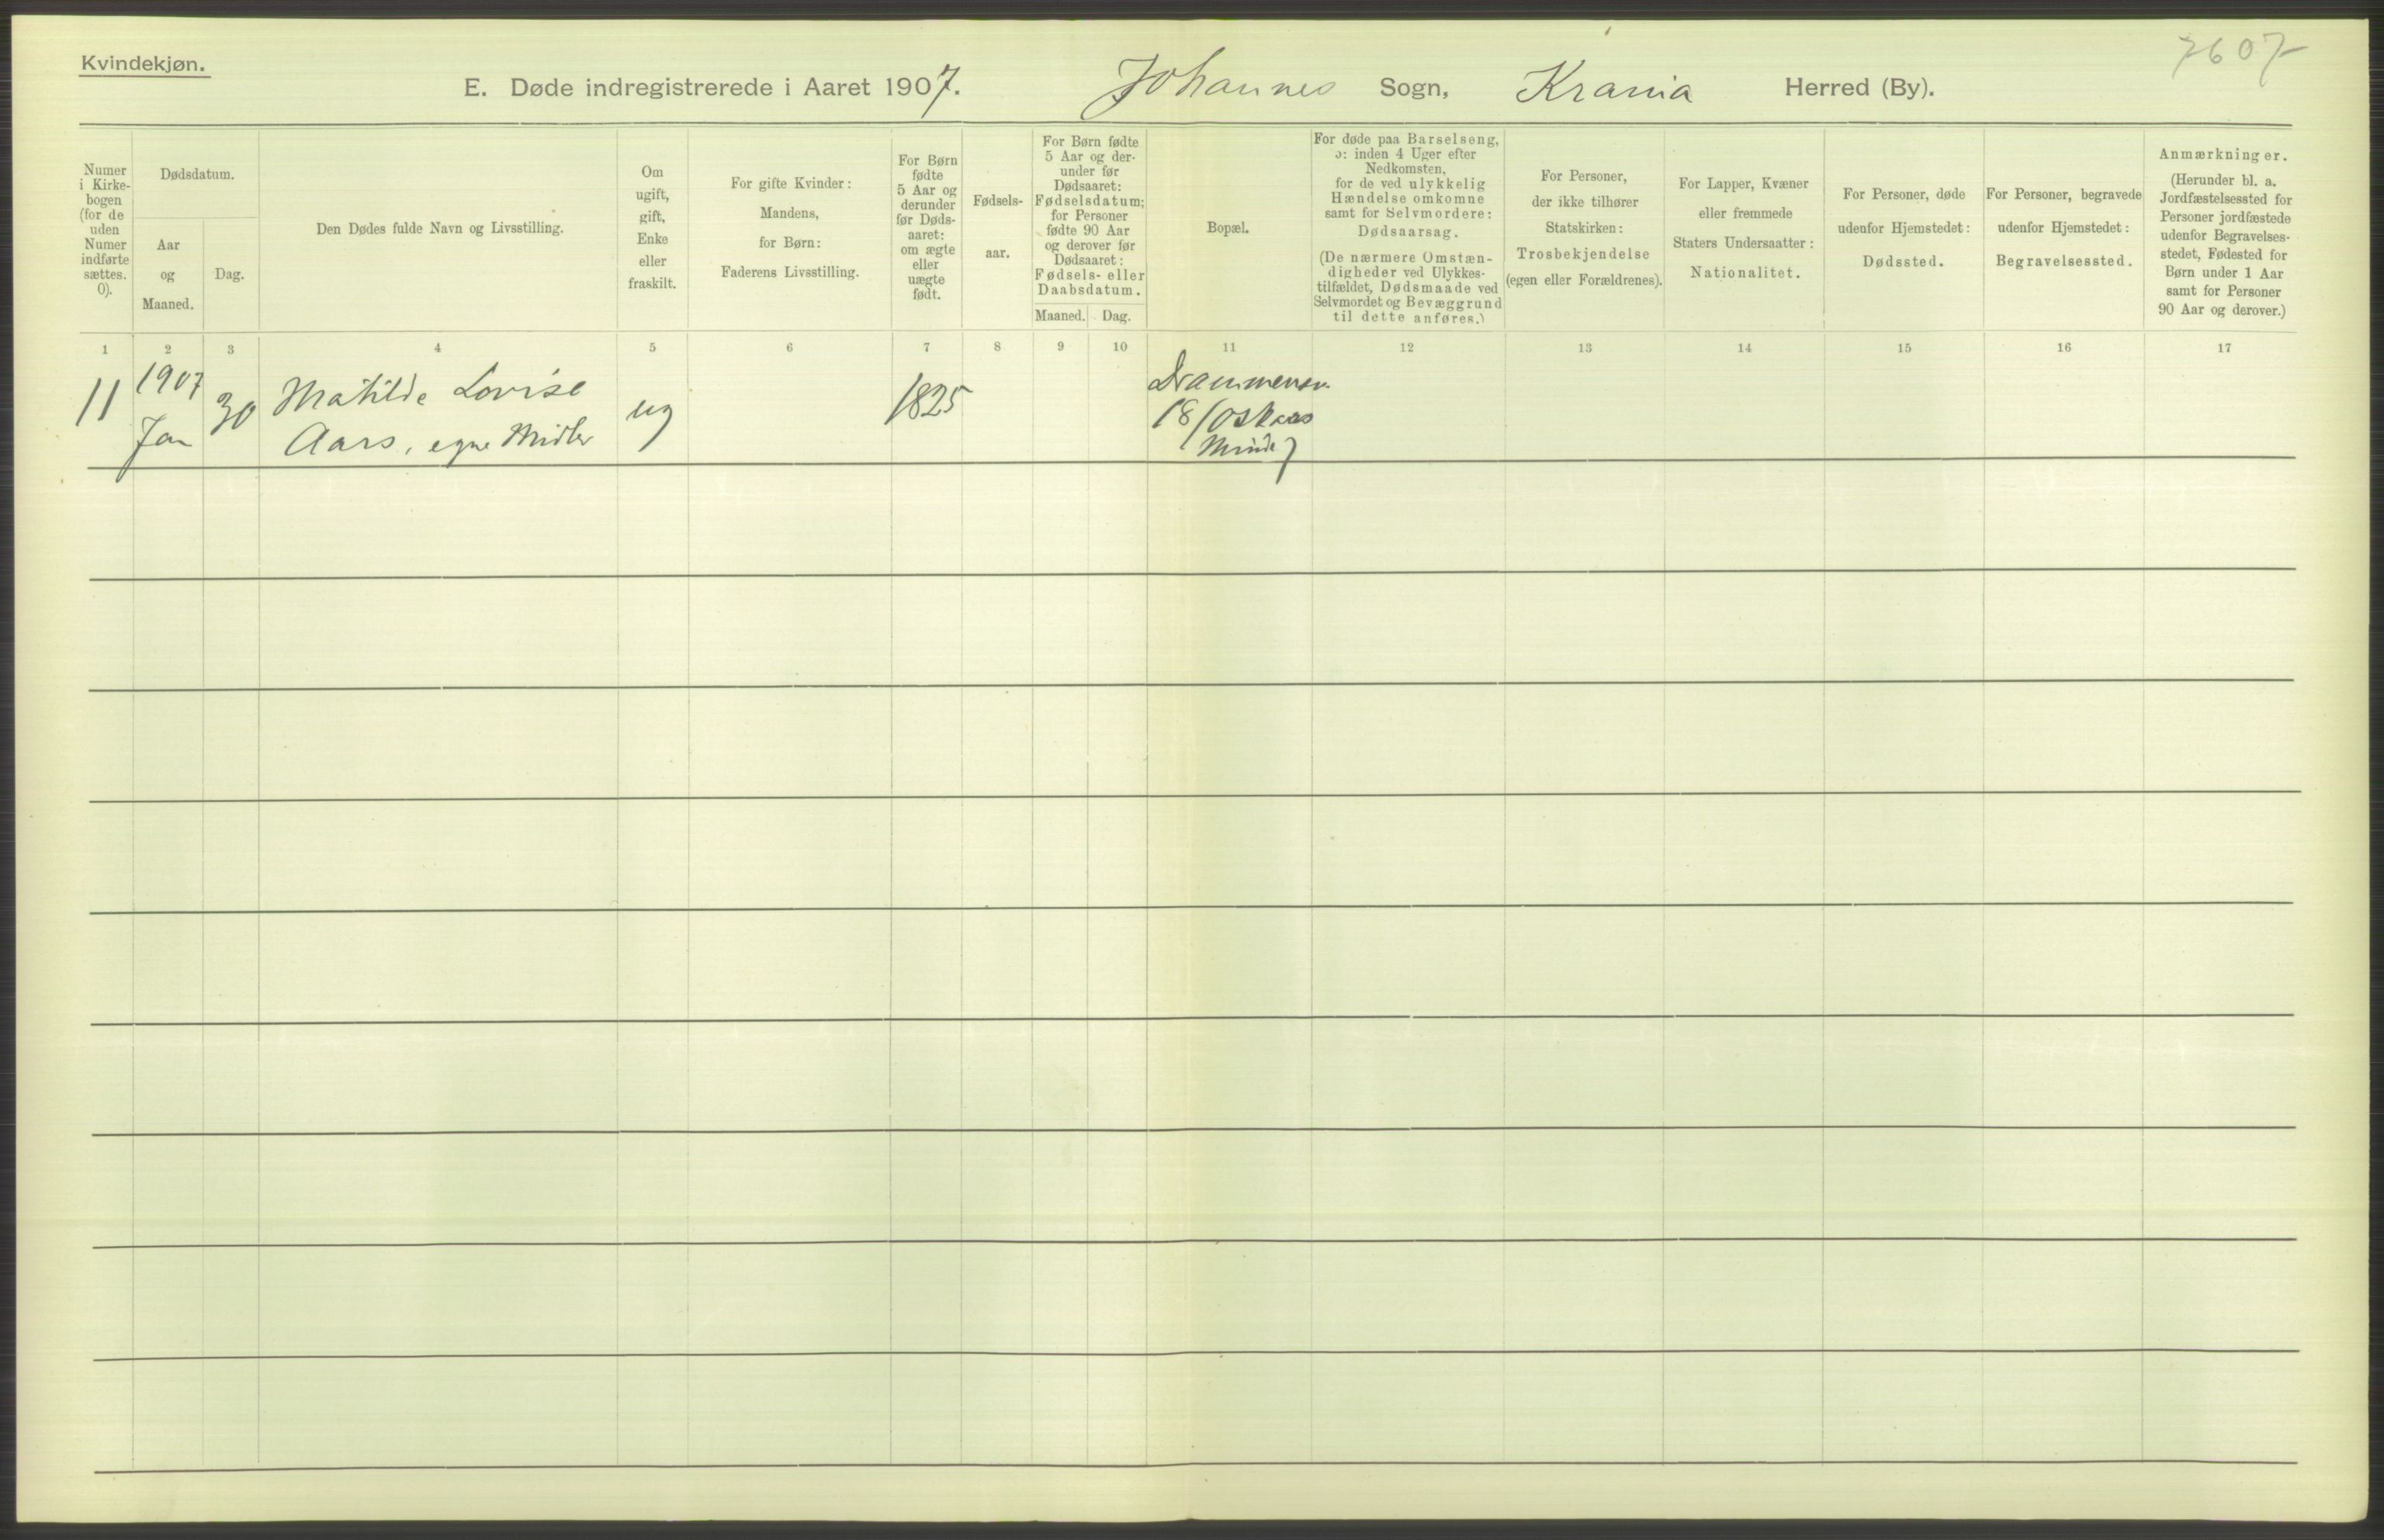 Kvindekjøn.
7607
E. Døde indregistrerede i Aaret 1907. Johannes Sogn, Krania Herred (By).
Numer
i Kirke-
bogen
(for de
uden
Numer
indførte
sættes.
0).
Dødsdatum.
Aar
og
Maaned.
Dag.
Den Dødes fulde Navn og Livsstilling.
Om
ugift,
gift,
Enke
eller
fraskilt.
For gifte Kvinder:
Mandens,
for Børn:
Faderens Livsstilling.
For Børn
fødte
5 Aar og
derunder
før Døds-
aaret:
om ægte
eller
uægte
født.
Fødsels-
aar.
For Børn fødte
5 Aar og der-
under før
Dødsaaret:
Fødselsdatum;
for Personer
fødte 90 Aar
og derover før
Dødsaaret:
Fødsels- eller
Daabsdatum.
Maaned. Dag.
Bopæl.
For døde paa Barselseng,
ɔ: inden 4 Uger efter
Nedkomsten,
for de ved ulykkelig
Hændelse omkomne
samt for Selvmordere:
Dødsaarsag.
(De nærmere Omstæn-
digheder ved Ulykkes-
tilfældet, Dødsmaade ved
Selvmordet og Bevæggrund
til dette anføres.)
For Personer,
der ikke tilhører
Statskirken:
Trosbekjendelse
(egen eller Forældrenes).
For Lapper, Kvæner
eller fremmede
Staters Undersaatter:
Nationalitet.
For Personer, døde
udenfor Hjemstedet:
Dødssted.
For Personer, begravede
udenfor Hjemstedet:
Begravelsessted.
Anmærkninger.
(Herunder bl. a.
Jordfæstelsessted for
Personer jordfæstede
udenfor Begravelses-
stedet, Fødested for
Børn under 1 Aar
samt for Personer
90 Aar og derover.)
1 2 3 4 5 6 7 8 9 10 11 12 13 14 15 16 17
11
1907
Jan
30
Mathilde Lovise
Aars, egne Midler
ug
1825
Drammensv.
18 (Oskars
Minde)